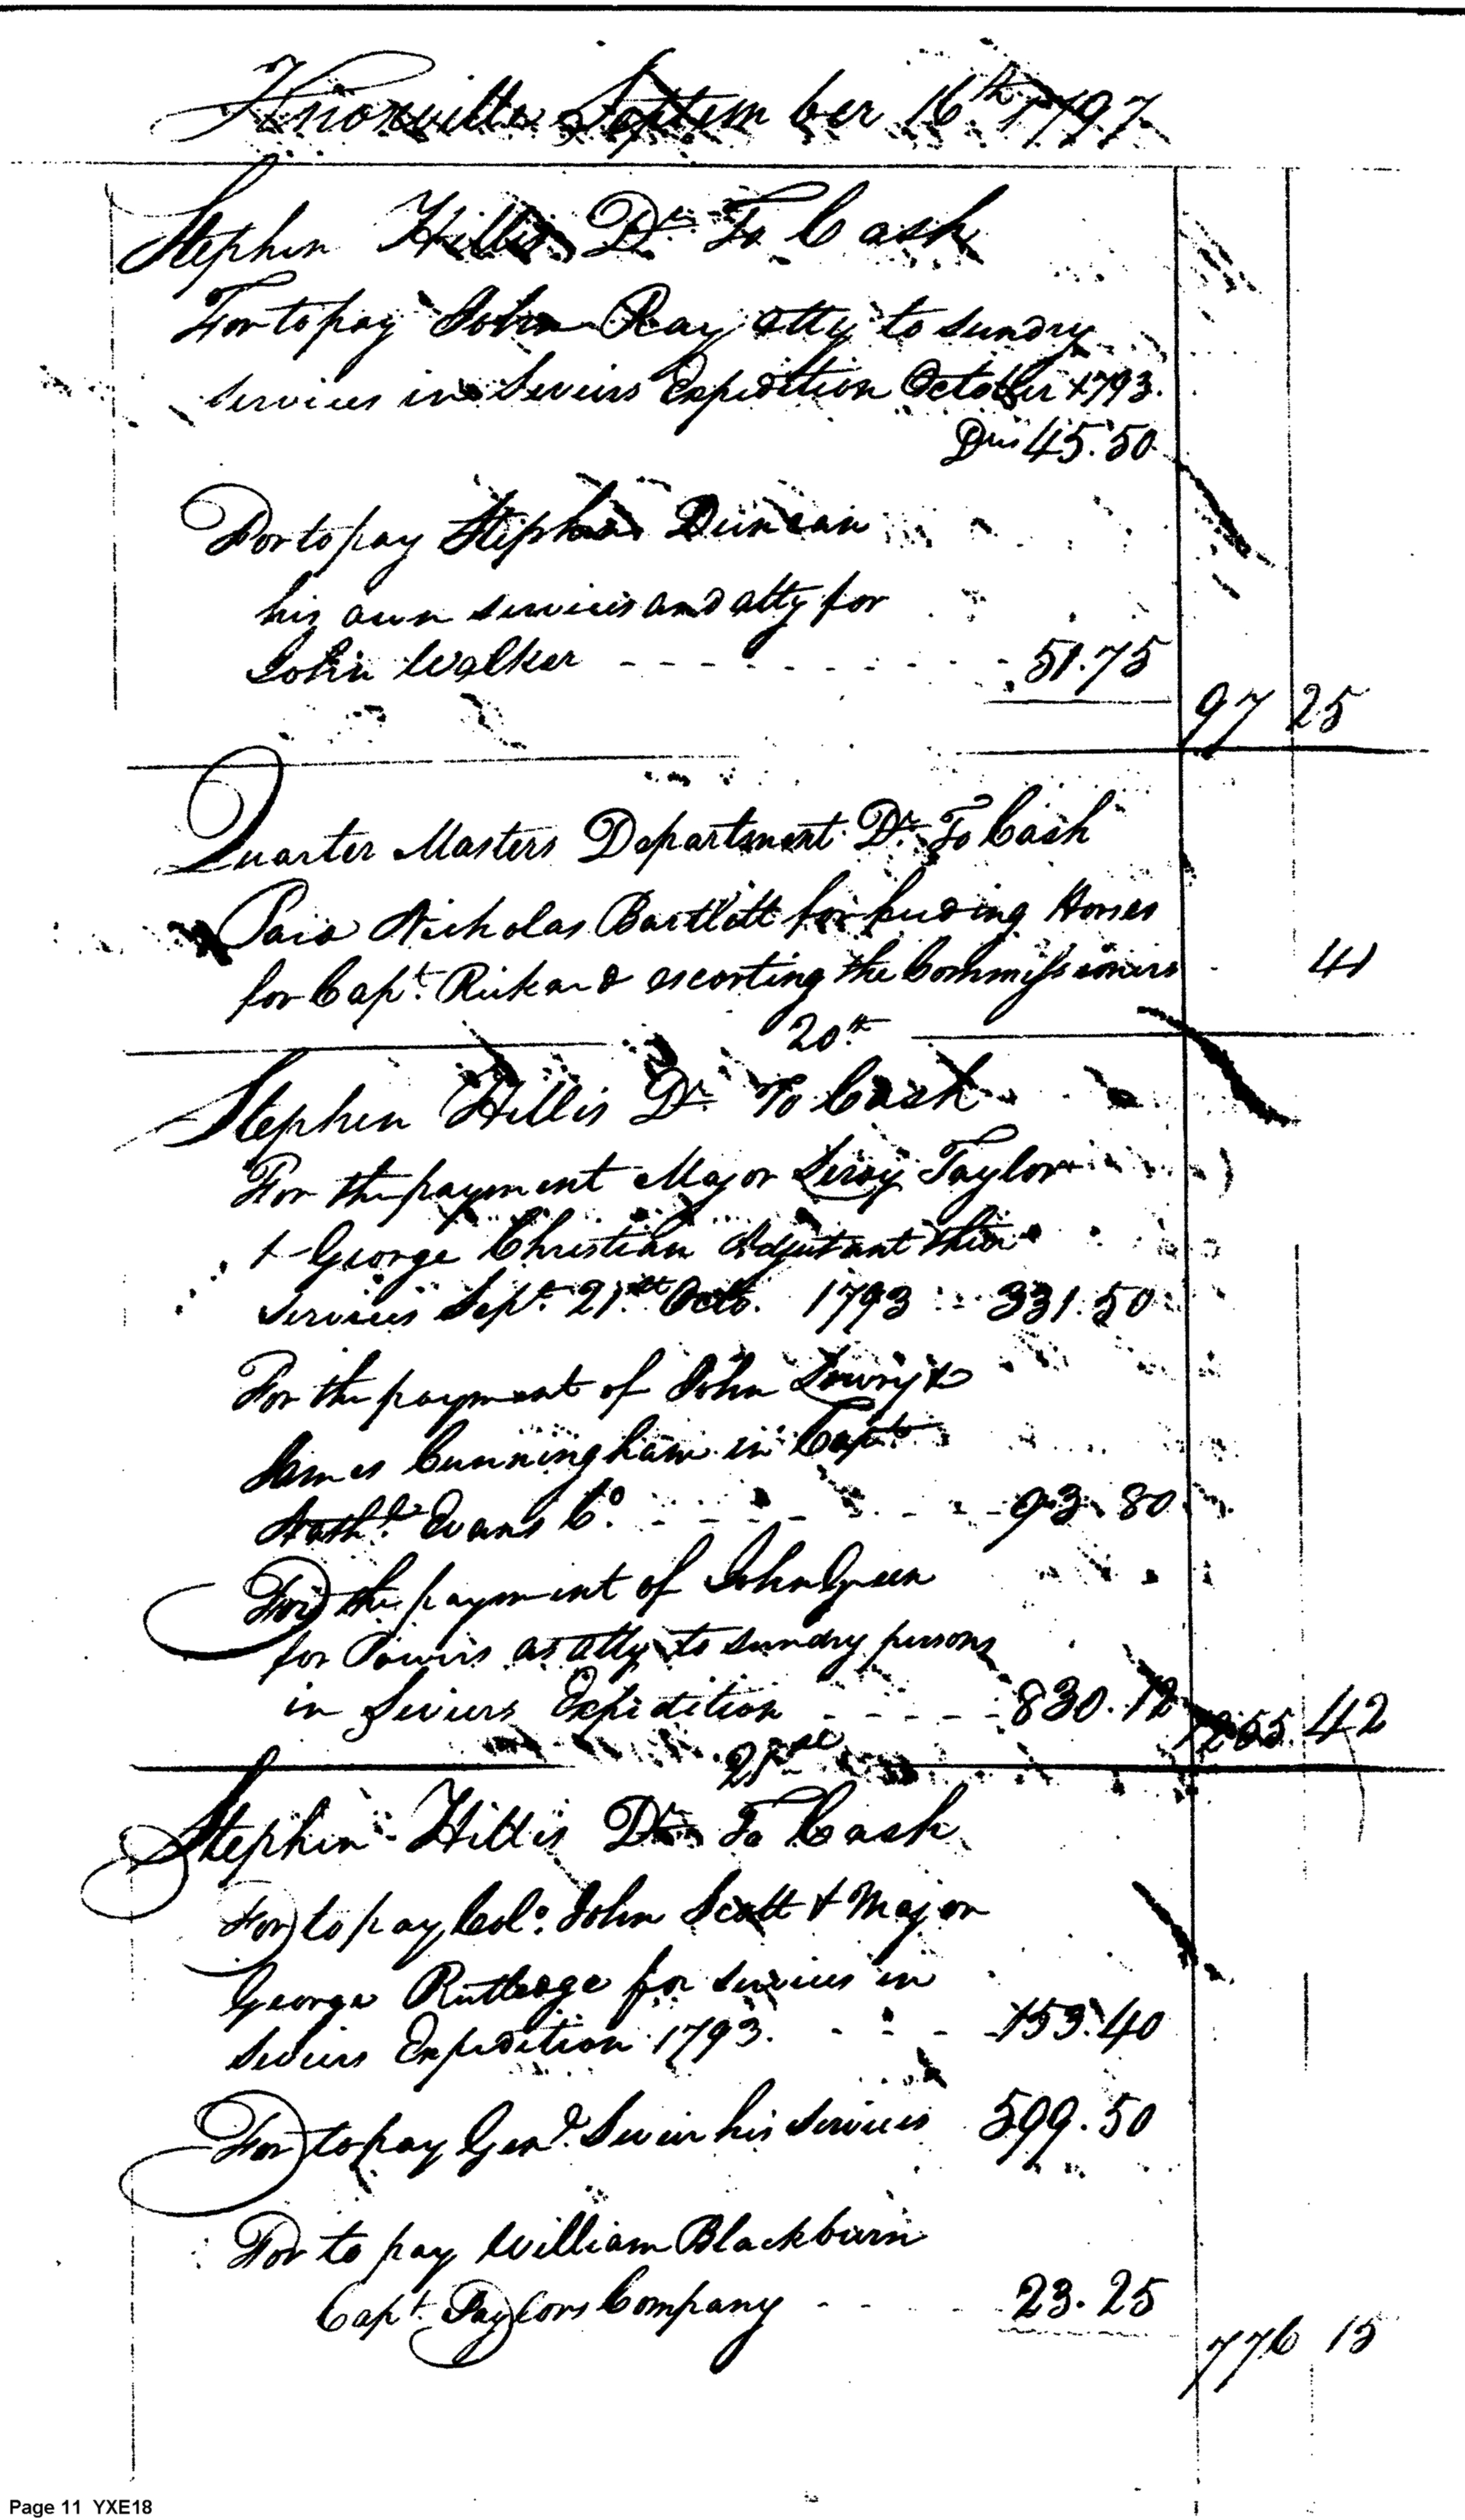 Knoxville September 16th 1797
Stephen Hillis Dr To Cash
For to pay John Ray atty to sundry
services in Seviers Expedition October 1793.
Drs 45.50
For to pay Stephen Duncan
his own services and atty for
John Walker - - - - - - - - - 51.75
97 25
Quarter Masters Department Dr To Cash
Paid Nicholas Bartlett for feeding Horses
for Capt. Rickard escorting the Commissioners 41
20th
Stephen Hillis Dr To Cash
For the payment Major Leroy Taylor
& George Christian Adjutant their
Services Sept. 21st Octo. 1793 331.50
For the payment of John Lowry &
James Cunningham in Capt
Nathl. Evans Co. - - - - - - - 93.80
For the payment of John Green
for Powers as atty to sundry persons
in Seviers Expedition - - - - - 830.12
1255 42
21st
Stephen Hillis Dr To Cash
For to pay Colo: John Scott & Major
George Rutledge for services in
Seviers Expedition 1793. - - - 153.40
For to pay Genl. Sevier his Services 599.50
For to pay William Blackburn
Capt. Taylors Company - - - - - 23.25
776 15
Page 11 YXE18